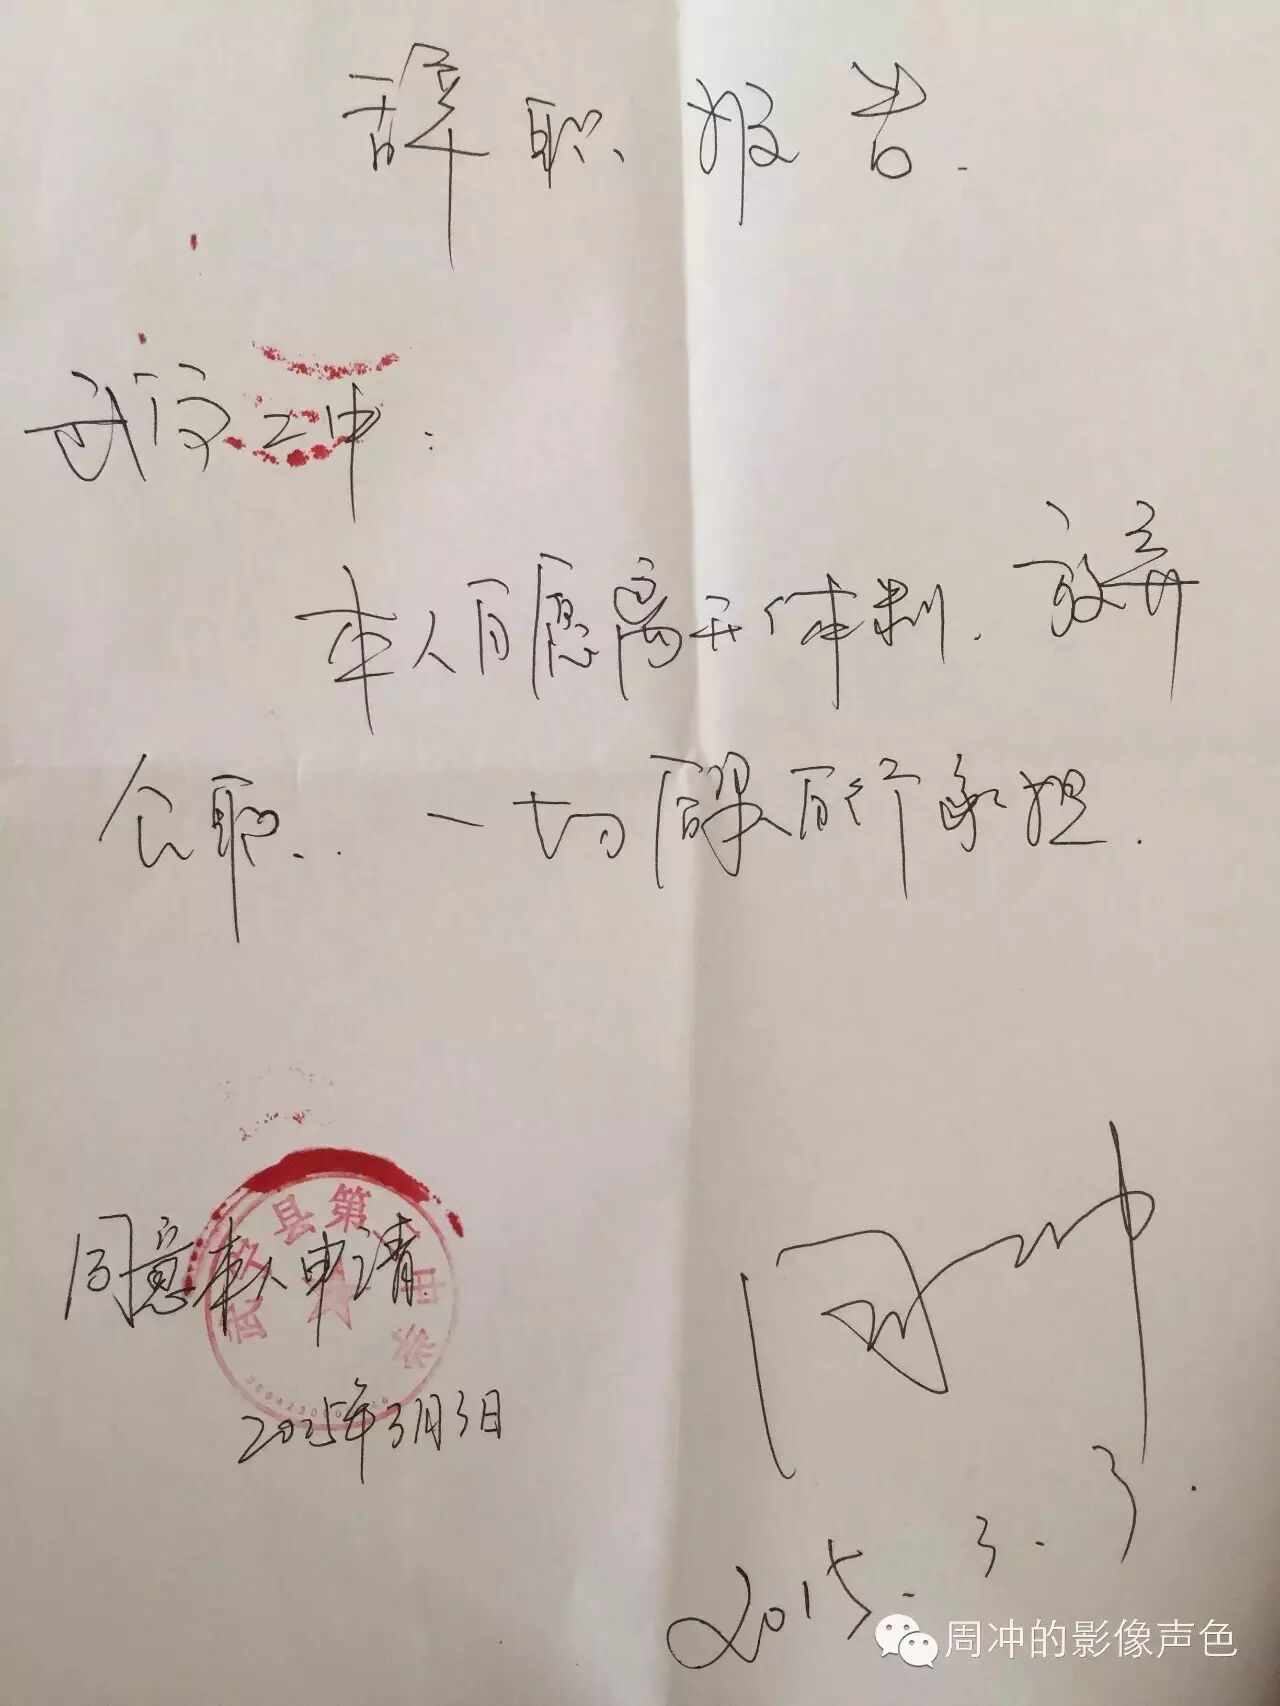 辞职报告.
武宁二中:
本人自愿离开体制、放弃
公职、一切后果自行承担.
武宁县第二中学
同意本人申请
2015年3月3日
周冲
2015.3.3.
周冲的影像声色